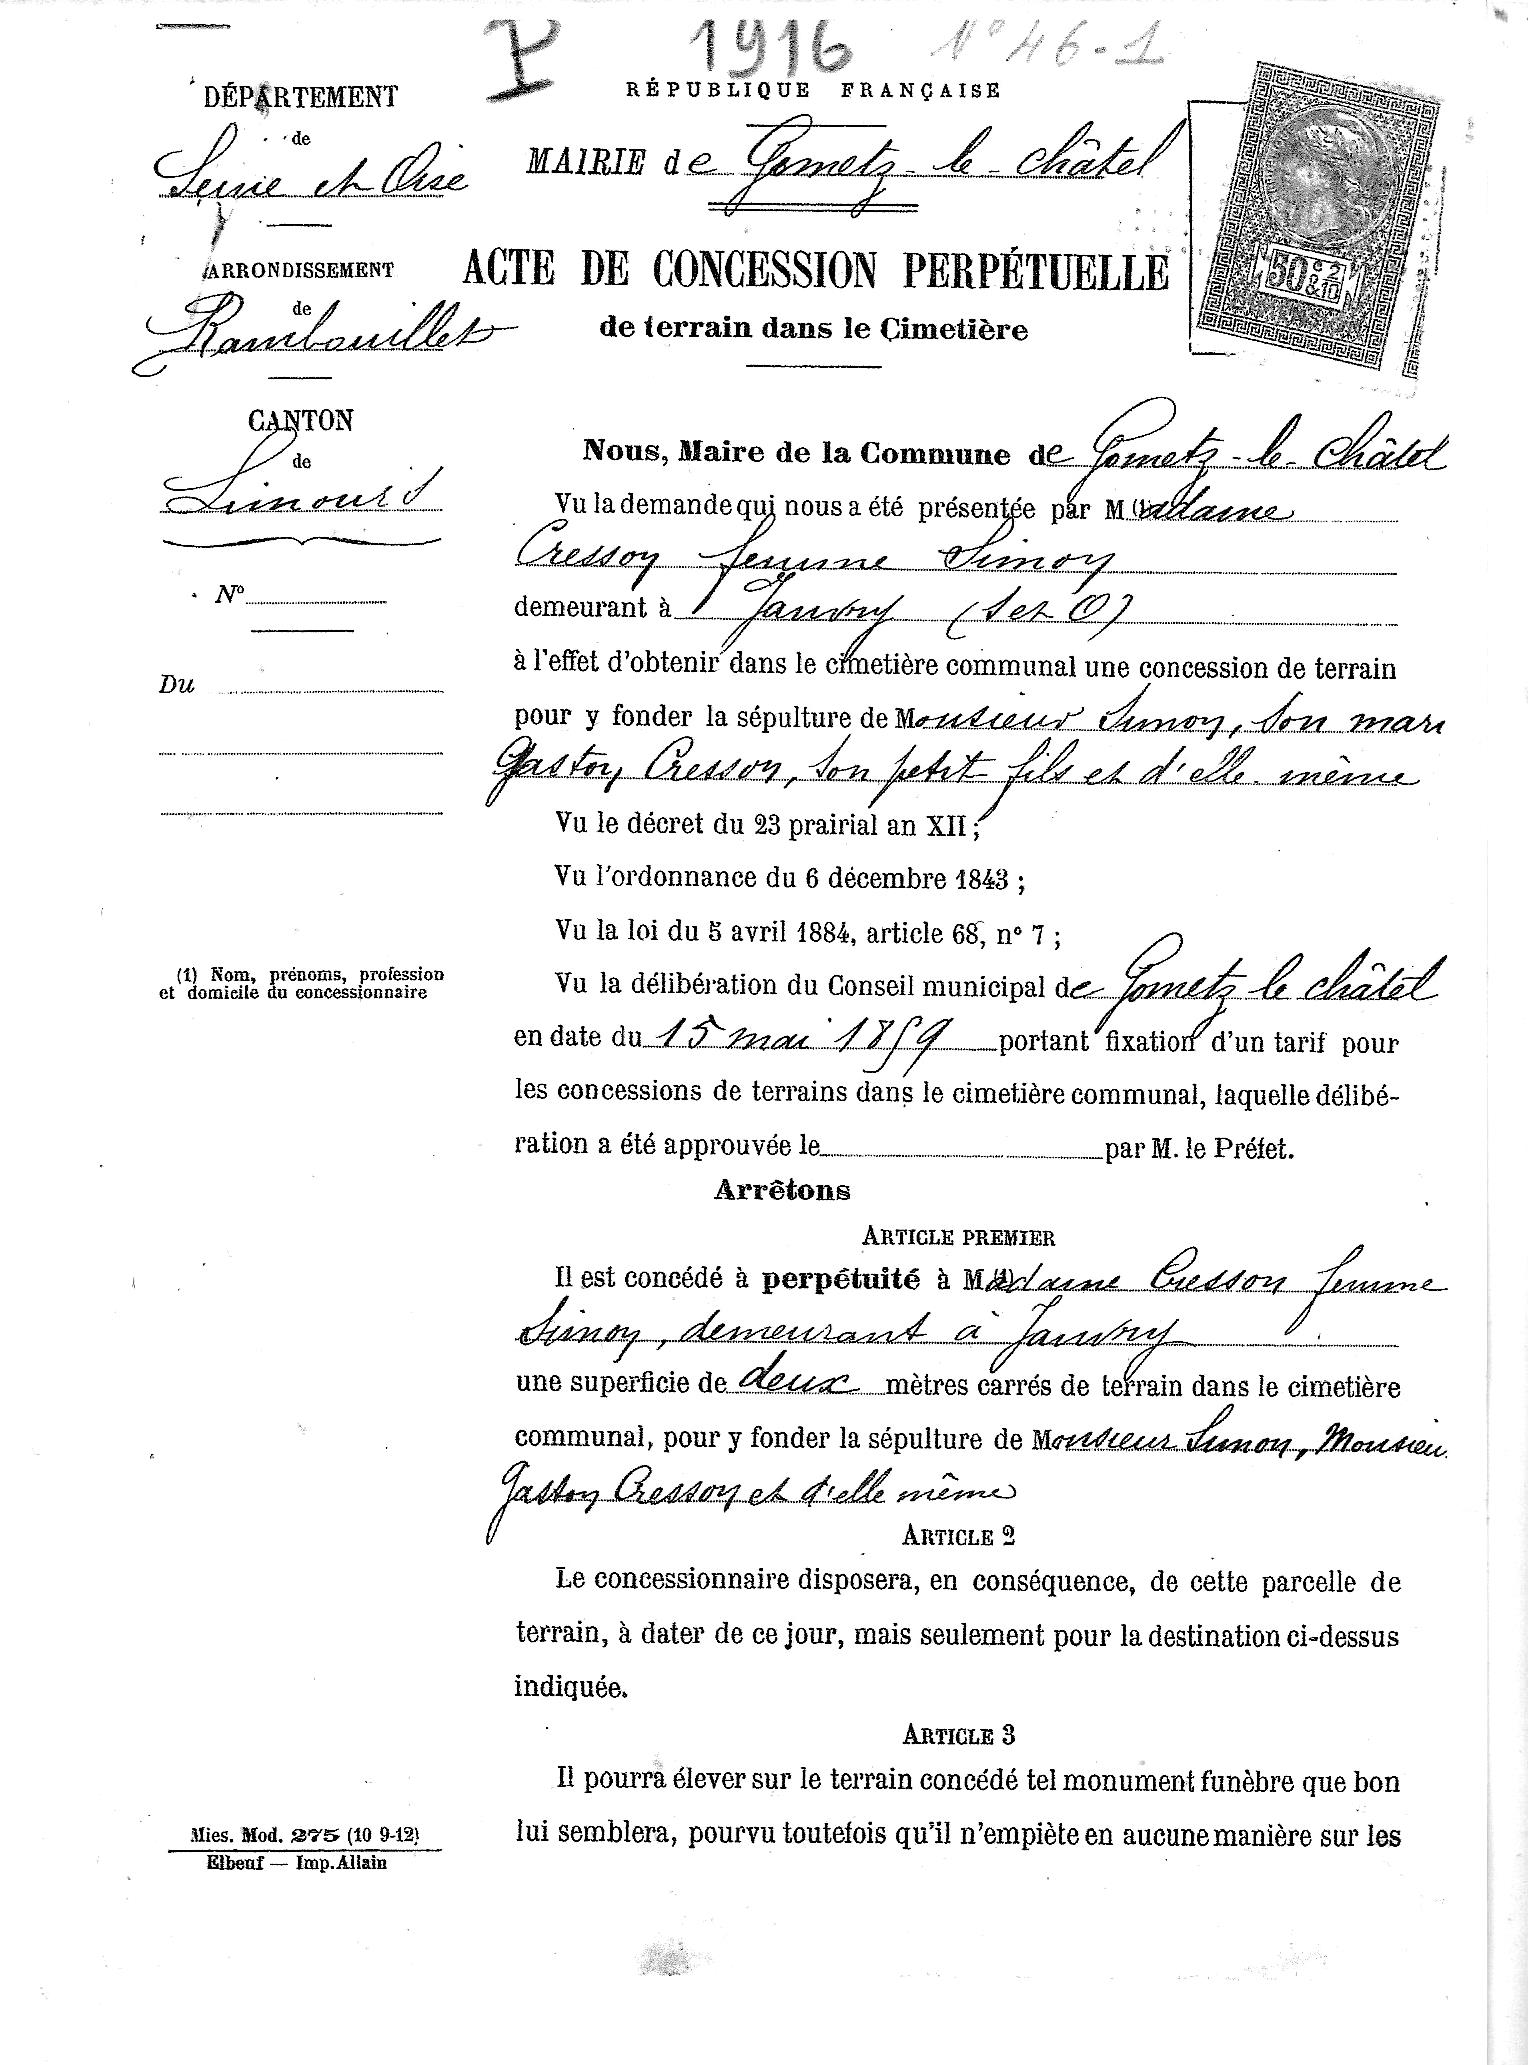 P 1916 N° 46-1
DÉPARTEMENT
de
Seine et Oise
ARRONDISSEMENT
de
Rambouillet
CANTON
de
Limours
N°
Du
(1) Nom, prénoms, profession
et domicile du concessionnaire
Mies. Mod. 275 (10 9-12)
Elbeuf — Imp. Allain
RÉPUBLIQUE FRANÇAISE
MAIRIE de Gometz-le-Châtel
50 c & 2/10
ACTE DE CONCESSION PERPÉTUELLE
de terrain dans le Cimetière
Nous, Maire de la Commune de Gometz-le-Châtel
Vu la demande qui nous a été présentée par M(1)adame
Cresson femme Simon
demeurant à Janvry (S et O)
à l'effet d'obtenir dans le cimetière communal une concession de terrain
pour y fonder la sépulture de Monsieur Simon, son mari
Gaston Cresson, son petit fils et d'elle-même
Vu le décret du 23 prairial an XII ;
Vu l'ordonnance du 6 décembre 1843 ;
Vu la loi du 5 avril 1884, article 68, n° 7 ;
Vu la délibération du Conseil municipal de Gometz le châtel
en date du 15 mai 1859 portant fixation d'un tarif pour
les concessions de terrains dans le cimetière communal, laquelle délibé-
ration a été approuvée le par M. le Préfet.
Arrêtons
ARTICLE PREMIER
Il est concédé à perpétuité à M(1)adame Cresson femme
Simon, demeurant à Janvry
une superficie de deux mètres carrés de terrain dans le cimetière
communal, pour y fonder la sépulture de Monsieur Simon, Monsieu
Gaston Cresson et d'elle même
ARTICLE 2
Le concessionnaire disposera, en conséquence, de cette parcelle de
terrain, à dater de ce jour, mais seulement pour la destination ci-dessus
indiquée.
ARTICLE 3
Il pourra élever sur le terrain concédé tel monument funèbre que bon
lui semblera, pourvu toutefois qu'il n'empiète en aucune manière sur les